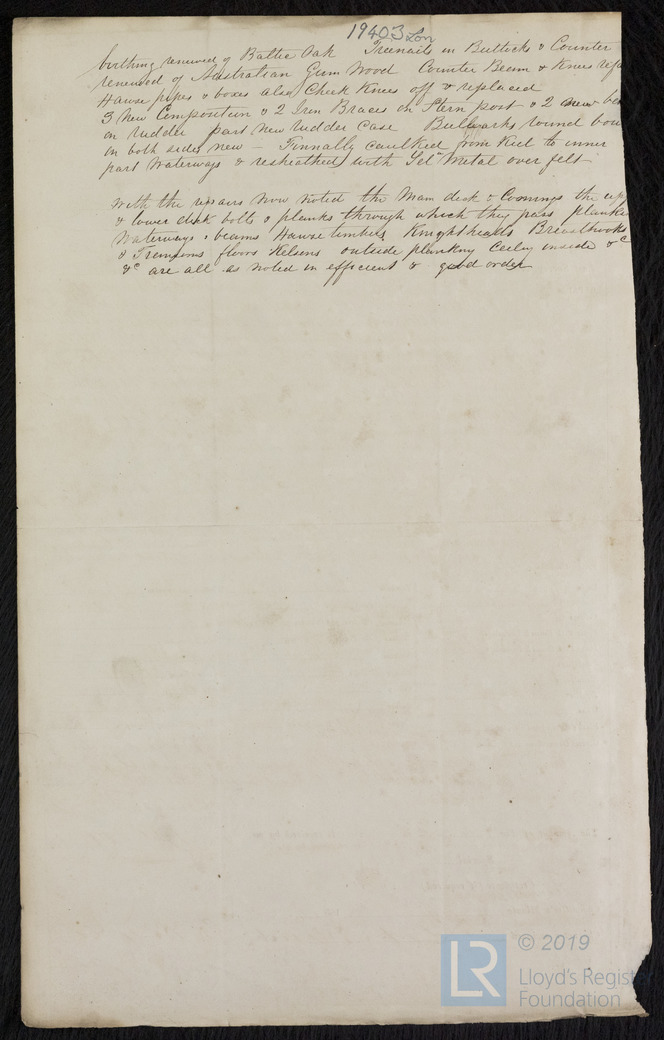 19403 Lon
birthing renewed of Baltic Oak Treenails in Buttocks & Counter
renewed of Australian Gum Wood Counter Beam & Knees refa
Hawse pipes & boxes also Cheek Knees off & replaced
3 New Composition & 2 Iron Braces on Stern post & 2 new
on rudder part New rudder Case Bullwarks round bow
on both sides new – Finnally caulked from Keel to inner
part Waterways & resheathed with Yel Metal over felt
With the repairs now noted the Main deck & Comings the upp
& lower deck bolts & planks through which they pass planks
Waterways, beams Hawse timbers Knightheads Breasthooks
& Transoms floors Kelsons outside planking Ceiling inside &c
&c are all as noted in efficient & good order
© 2019
LR
Lloyd's Register
Foundation